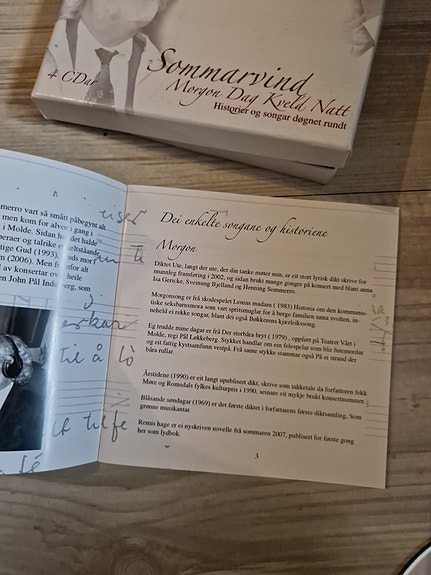 4 CDar
Sommarvind
Morgon Dag Kveld Natt
Historier og songar døgnet rundt
merro vart så smått påbegynt alt
men kom for alvor i gang i
i Molde. Sidan har det halde
peraer og talrike enkeltståande
tige Gud (1993),
en (2006). Mer
l av konsertar over heile
en John Pål Inderberg, som
til å
Dei enkelte songane og historiene
Morgon
Diktet Ute, langt der ute, der din tanke møter min, er eit stort lyrisk dikt skrive for
munnleg framføring i 2002, og sidan brukt mange gonger på konsert med blant anna
Isa Gericke, Sveinung Bjelland og Henning Sommerro.
Morgonsong er frå skodespelet Lenins madam ( 1983) Historia om den kommunis-
tiske seksbarnsmora som vart spritsmuglar for å berge familien unna svolten, in-
neheld ei rekke songar, blant dei også Bøkkerens kjærleikssong.
Eg trudde mine dagar er frå Der storbåra bryt ( 1979) , oppført på Teatret Vårt i
Molde, regi Pål Løkkeberg. Stykket handlar om ein felespelar som blir futemordar
og eit fattig kystsamfunn vestpå. Frå same stykke stammar også På ei strand der
båra rullar.
Årstidene (1990) er eit langt upublisert dikt, skrive som takketale då forfattaren fekk
Møre og Romsdals fylkes kulturpris i 1990, seinare eit mykje brukt konsertnummer.
Blåsande søndagar (1969) er det første diktet i forfattarens første diktsamling, Som
grøne musikantar.
Remis hage er ei nyskriven novelle frå sommaren 2007, publisert for første gong
her som lydbok.
3